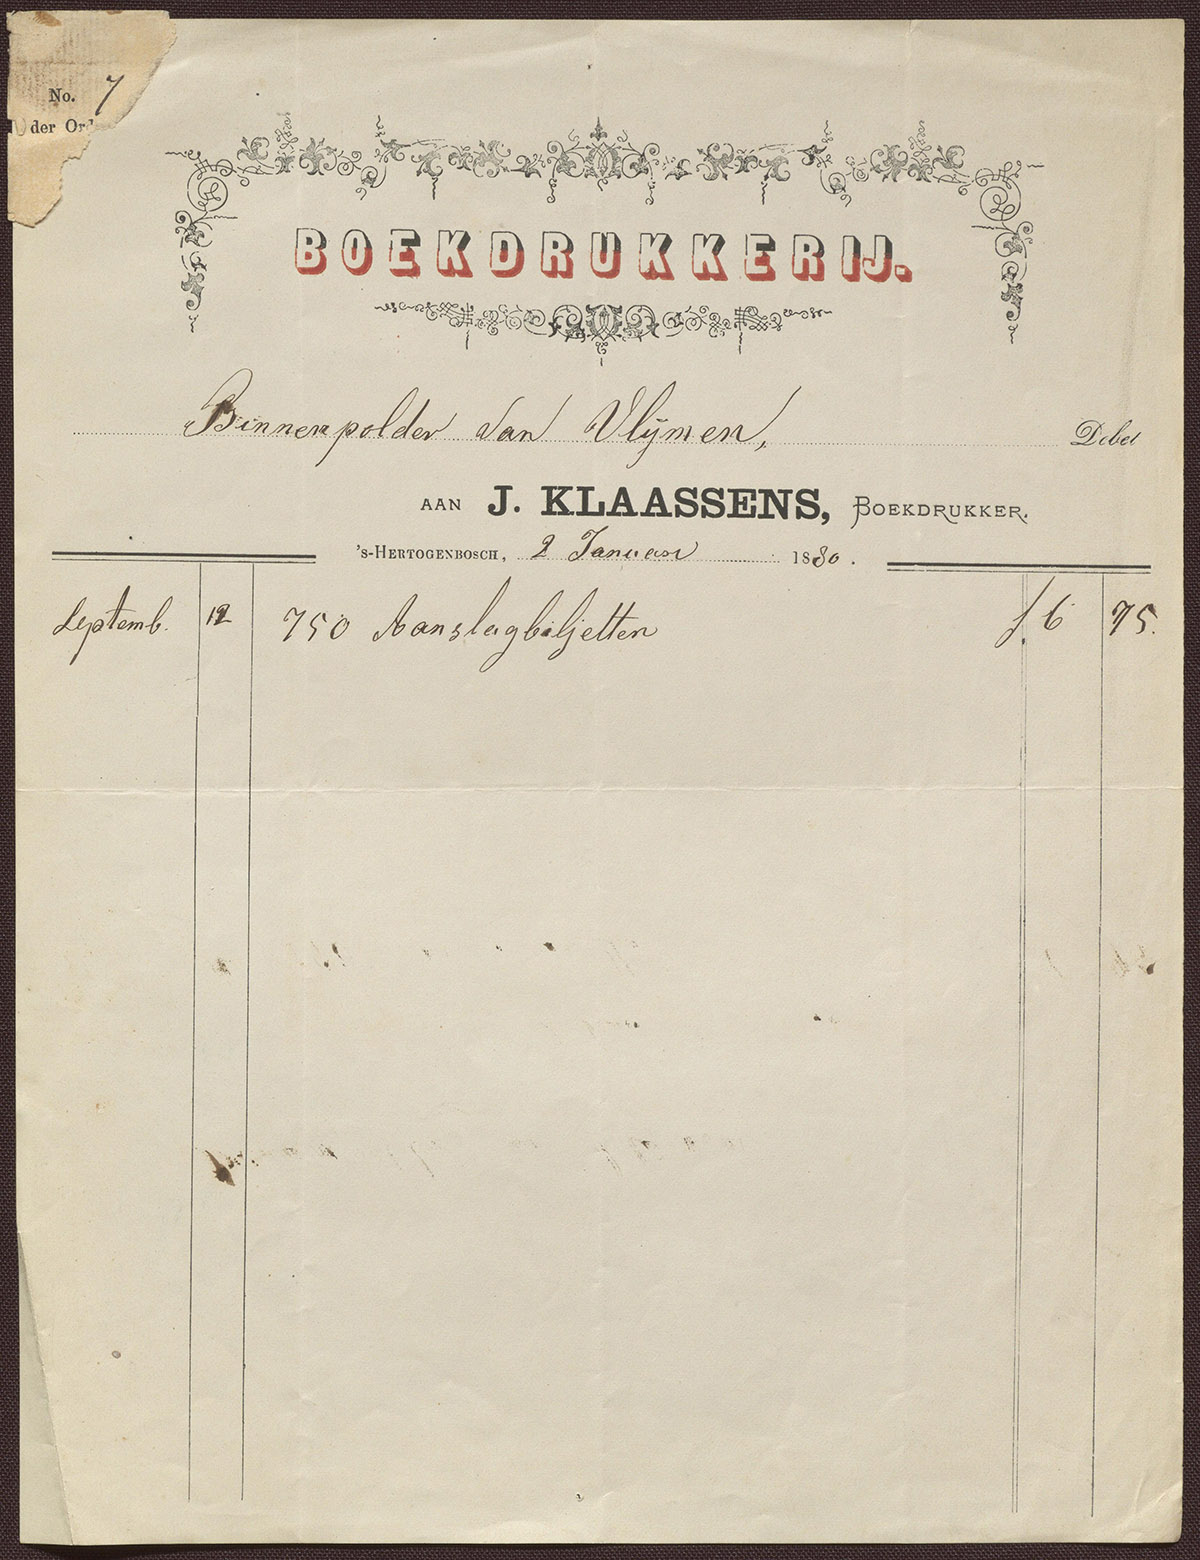 No. 7
der Ord
BOEKDRUKKERIJ.
Binnenpolder van Vlijmen, Debet
AAN J. KLAASSENS, BOEKDRUKKER.
'S-HERTOGENBOSCH, 2 Januari 1880.
Septemb. 12 750 Aanslagbiljetten f 6 75.